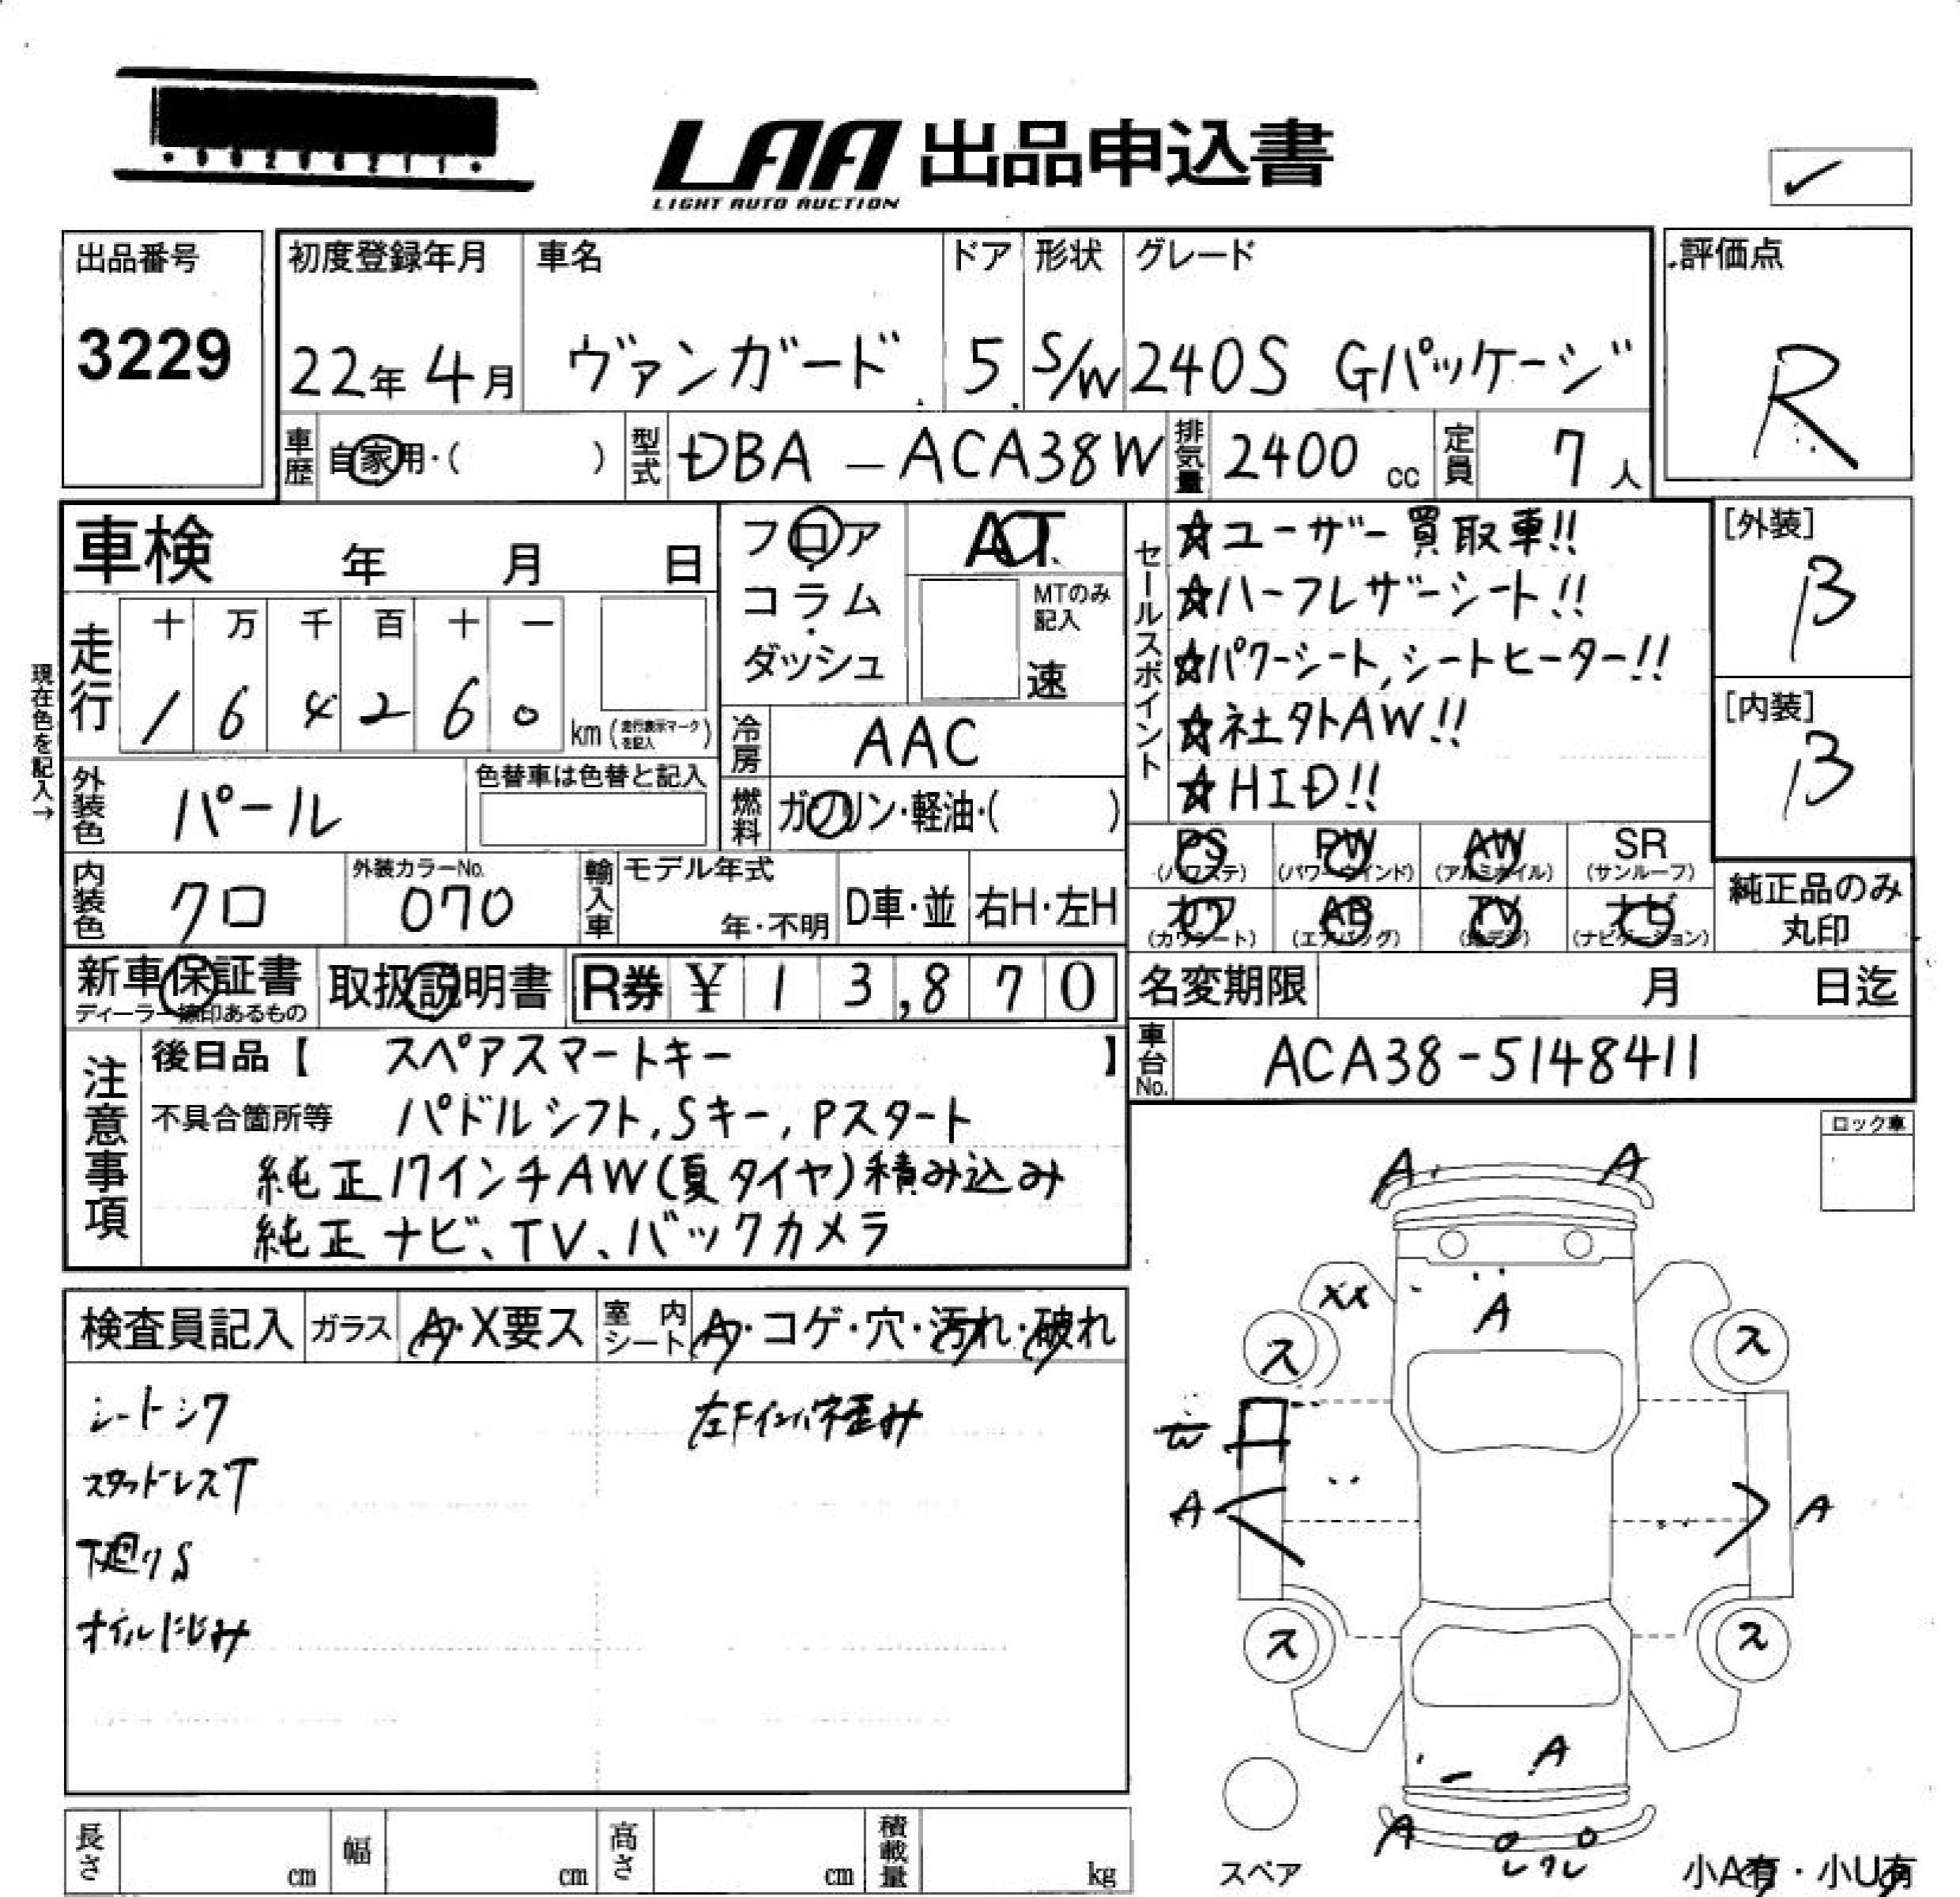 LAA 出品申込書
LIGHT AUTO AUCTION
出品番号
3229
初度登録年月
22年 4月
車名
ヴァンガード
ドア
5
形状
S/W
グレード
240S Gパッケージ
評価点
R
車歴 自家用・( )
型式 DBA-ACA38W
排気量 2400 cc
定員 7人
車検 年 月 日
フロア
コラム
ダッシュ
AT
MTのみ記入
速
セールスポイント
☆ユーザー買取車!!
☆ハーフレザーシート!!
☆パワーシート,シートヒーター!!
☆社外AW!!
☆HID!!
[外装]
B
[内装]
B
現在色を記入→
走行
十 万 千 百 十 一
1 6 4 2 6 0
km (走行表示マークを記入)
冷房 AAC
燃料 ガソリン・軽油・( )
外装色 パール
色替車は色替と記入
内装色 クロ
外装カラーNo.
070
輸入車
モデル年式
年・不明
D車・並
右H・左H
PS (パワステ)
PW (パワーウインド)
AW (アルミホイル)
SR (サンルーフ)
カワ (カワシート)
AB (エアバッグ)
TV (地デジ)
ナビ (ナビゲーション)
純正品のみ
丸印
新車保証書
ディーラー捺印あるもの
取扱説明書
R券 ¥ 13,870
名変期限 月 日迄
車台No. ACA38-5148411
注意事項
後日品【 スペアスマートキー 】
不具合箇所等 パドルシフト,Sキー,Pスタート
純正17インチAW(夏タイヤ)積み込み
純正ナビ、TV、バックカメラ
ロック車
検査員記入
ガラス A・X要ス
室内シート A・コゲ・穴・汚れ・破れ
シートシワ
スタッドレスT
下廻りS
オイルにじみ
左Fインパネ歪み
A A
XX
A
ス ス
W
A A
ス ス
A
A
スペア
小A有・小U有
長さ cm
幅 cm
高さ cm
積載量 kg